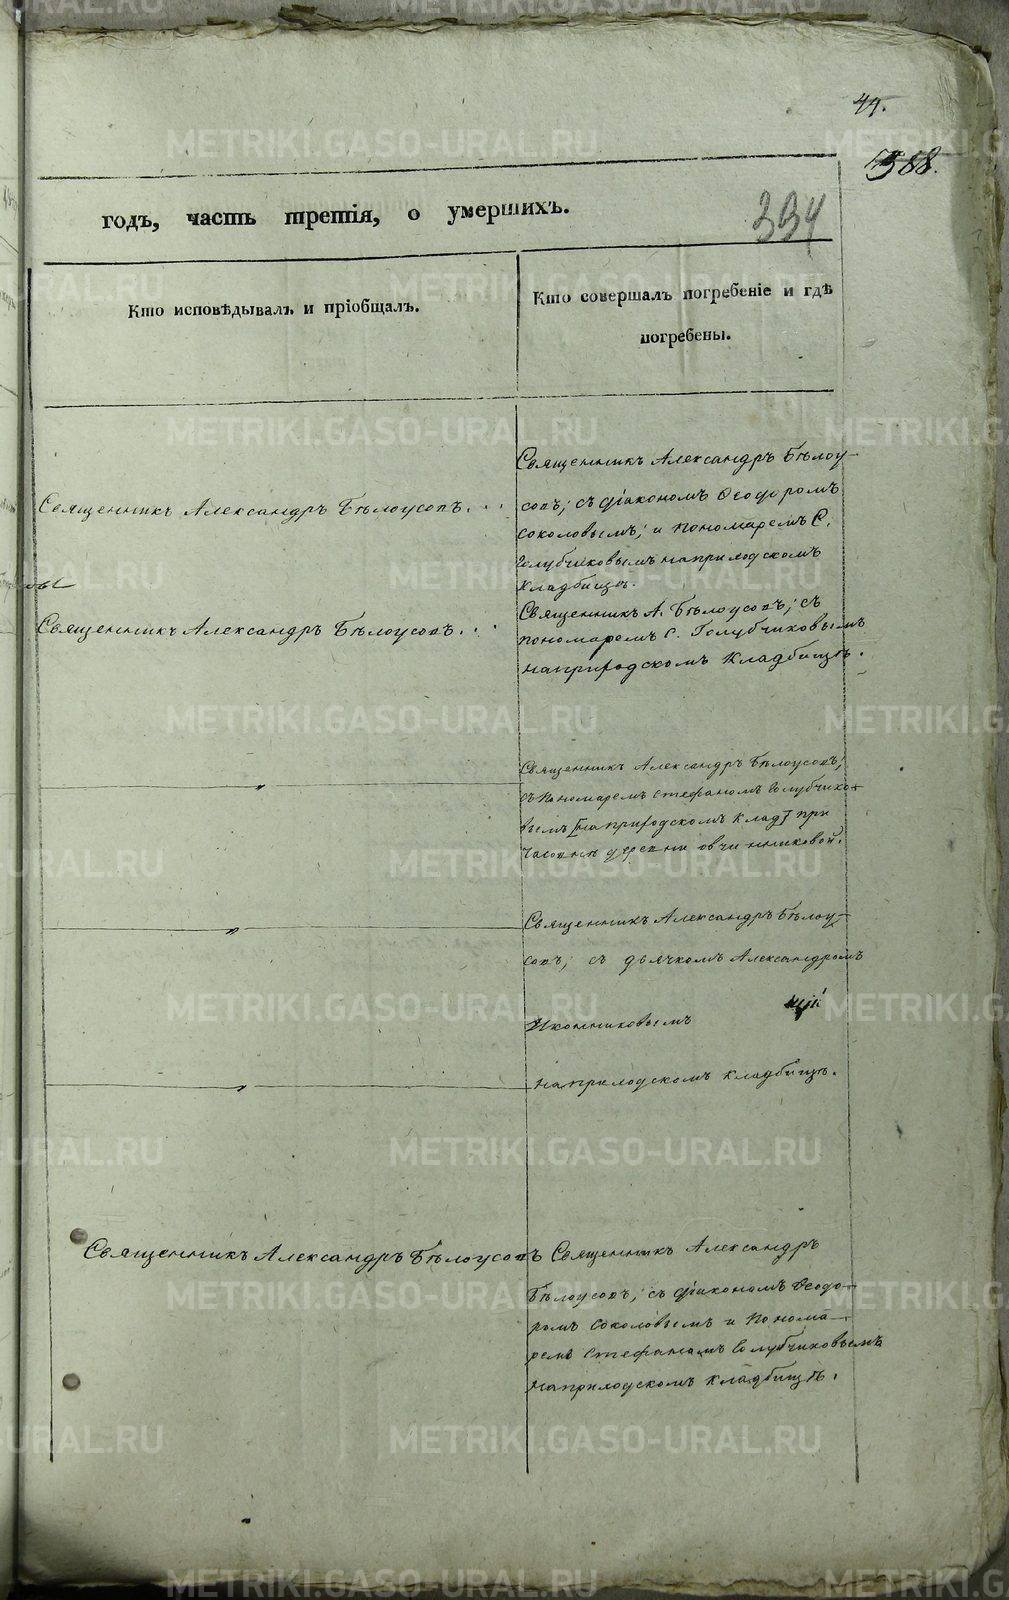 44.
388.
334
годъ, часть третія, о умершихъ.
Кто исповѣдывалъ и пріобщалъ.
Кто совершалъ погребеніе и гдѣ
погребены.
Священникъ Александръ Бѣлоусовъ.
Священникъ Александръ Бѣлоу-
совъ; съ діакономъ Ѳеодоромъ
соколовымъ; и пономаремъ С.
Голубчиковымъ на приходскомъ
кладбищѣ.
Священникъ Александръ Бѣлоусовъ.
Священникъ А. Бѣлоусовъ; съ
пономаромъ С. Голубчиковымъ
на приходскомъ кладбищѣ.
Священникъ Александръ Бѣлоусовъ;
съ пономаремъ стефаномъ Голубчико-
вымъ [на приходскомъ клад] при
часовнѣ деревни овчинниковой.
Священникъ Александръ Бѣлоу-
совъ; съ дьячкомъ Александромъ
Иконниковымъ
на приходскомъ кладбищѣ.
Священникъ Александръ Бѣлоусовъ
Священникъ Александръ
Бѣлоусовъ; съ діакономъ Ѳеодо-
ромъ соколовымъ и понома-
ремъ стефаномъ Голубчиковымъ
на приходскомъ кладбищѣ.
METRIKI.GASO-URAL.RU